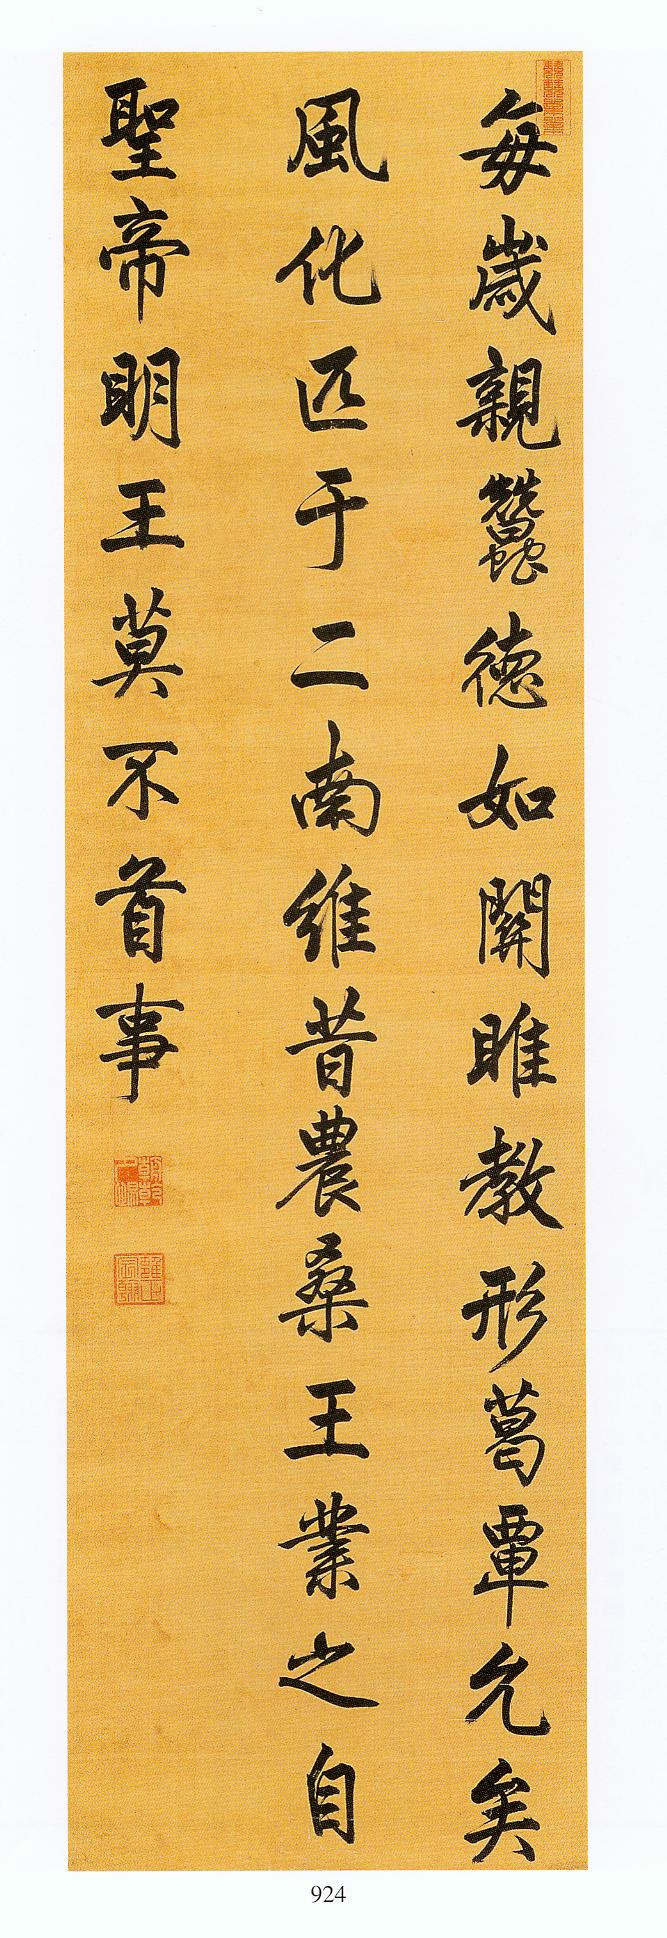 每歲親蠶德如關雎教形葛覃允矣
風化匹于二南維昔農桑王業之自
聖帝明王莫不首事
924